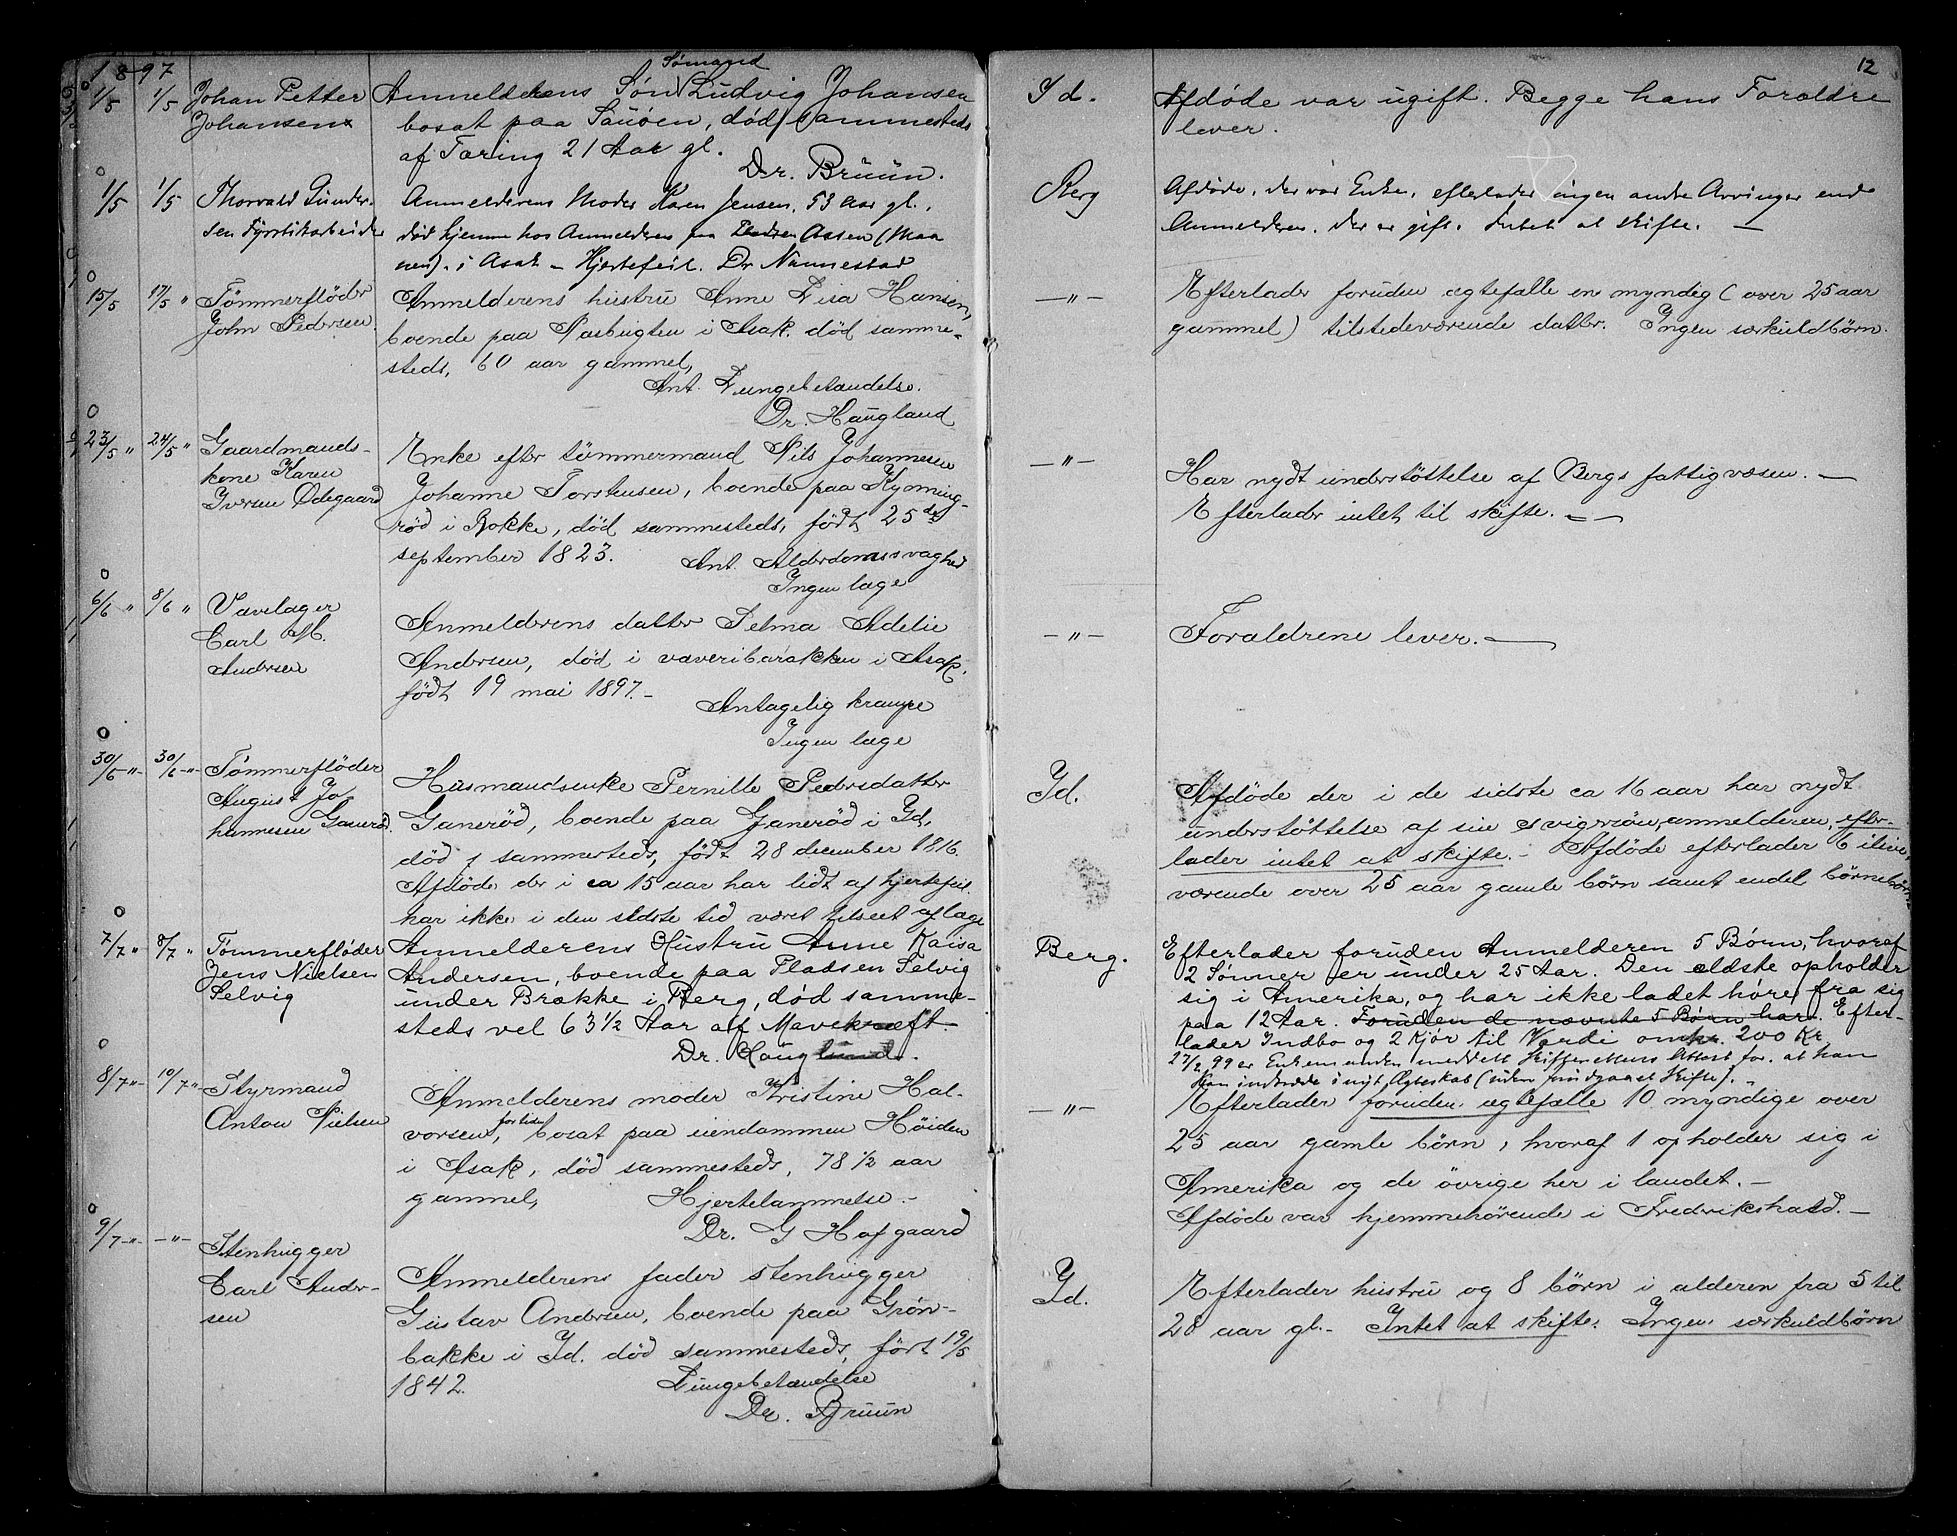 1897
12
1/5 1/5 Johan Petter
Johansen
Anmelderens Søn Sømand Ludvig Johansen
bosat paa Sauøen, død sammesteds
af Tæring 21 Aar gl.
Dr. Bruun.
Id.
Afdøde var ugift. Begge hans Forældre
lever.
1/5 1/5 Thorvald Gunder-
sen Fyrstikarbeider
Anmelderens Moder Karen Jensen, 53 aar gl.,
død hjemme hos Anmelderen paa Assen (Maa
nen). i Asak – Hjertefeil. Dr Nannestad
Berg
Afdøde, der var Enke, efterlader ingen andre Arvinger end
Anmelderen, der er gift. Intet at skifte. —
15/5 17/5 " Tømmerfløder
John Pedersen.
Anmelderens hustru Anne Lisa Hansen,
boende paa Pasbugten i Asak. død samme-
steds, 60 aar gammel,
Ant. Lungebetændelse.
Dr. Haugland
—"—
Efterlader foruden ægtefælle en myndig (over 25 aar
gammel) tilstedeværende datter. Ingen særkuldbørn.
23/5 " 24/5 " Gaardmands-
kone Karen
Iversen Ødegaard
Enke efter tømmermand Nils Johannesen
Johanne Torshusen, boende paa Kynning-
rød i Rokke, død sammesteds, født 25 de
september 1823.
Ant. Alderdomssvaghed
Ingen læge
—"—
Har nydt understøttelse af Bergs fattigvæsen. —
Efterlader intet til skifte. —
6/6 " 8/6 " Vævelager
Carl M.
Andersen
Anmelderens datter Selma Adelie
Andersen, død i væveribarakken i Asak.
født 19 mai 1897. –
Antagelig krampe
Ingen læge
—"—
Forældrene lever. —
30/6 –"– 30/6 –"– Tømmerfløder
August Jo
hannesen Ganerød.
Husmandsenke Pernille Pedersdatter
Ganerød, boende paa Ganerød i Id,
død sammesteds, født 28 december 1816.
Afdøde der i ca 15 aar har lidt af hjertefeil.
har ikke i den sidste tid været tilseet af læge
Id.
Afdøde der i de sidste ca 16 aar har nydt
understøttelse af sin svigersøn, anmelderen, efter-
lader intet at skifte. – Afdøde efterlader 6 ilive-
værende over 25 aar gamle børn samt endel børnebørn
7/7 " 8/7 " Tømmerfløder
Jens Nielsen
Selvig
Anmelderens Hustru Anne Kaisa
Andersen, boende paa Pladsen Selvig
under Brække i Berg, død samme-
steds vel 63 1/2 Aar af Mavekræft. –
Dr. Haugland.
Berg.
Efterlader foruden Anmelderen 5 Børn, hvoraf
2 Sønner er under 25 Aar. Den ældste opholder
sig i Amerika, og har ikke ladet høre fra sig
paa 12 Aar. Foruden de nævnte 5 Børn har. Efter-
lader Indbo og 2 Kjør til Værdi omkr. 200 Kr.
27/2 99 er Enkemanden meddelt Skifterettens Attest for, at han
kan indtræde i nyt Ægteskab (uden forudgaaet Skifte).
8/7 –"– 10/7 –"– Styrmand
Anton Nielsen
Anmelderens moder Kristine Hal-
vorsen, for tiden bosat paa eiendommen Høiden
i Asak, død sammesteds, 78 1/2 aar
gammel, Hjertelammelse. –
Dr. G Hafgaard
—"—
Efterlader foruden ægtefælle 10 myndige over
25 aar gamle børn, hvoraf 1 opholder sig i
Amerika og de øvrige her i landet. –
Afdøde var hjemmehørende i Fredrikshald. –
9/7 –"– –"– Stenhugger
Carl Ander-
sen
Anmelderens fader stenhugger
Gustav Andersen, boende paa Grøn-
bakke i Id. død sammesteds, født 19/5
1842. Lungebetændelse
Dr. Bruun
Id.
Efterlader hustru og 8 børn i alderen fra 5 til
28 aar gl. – Intet at skifte. Ingen særkuldbørn